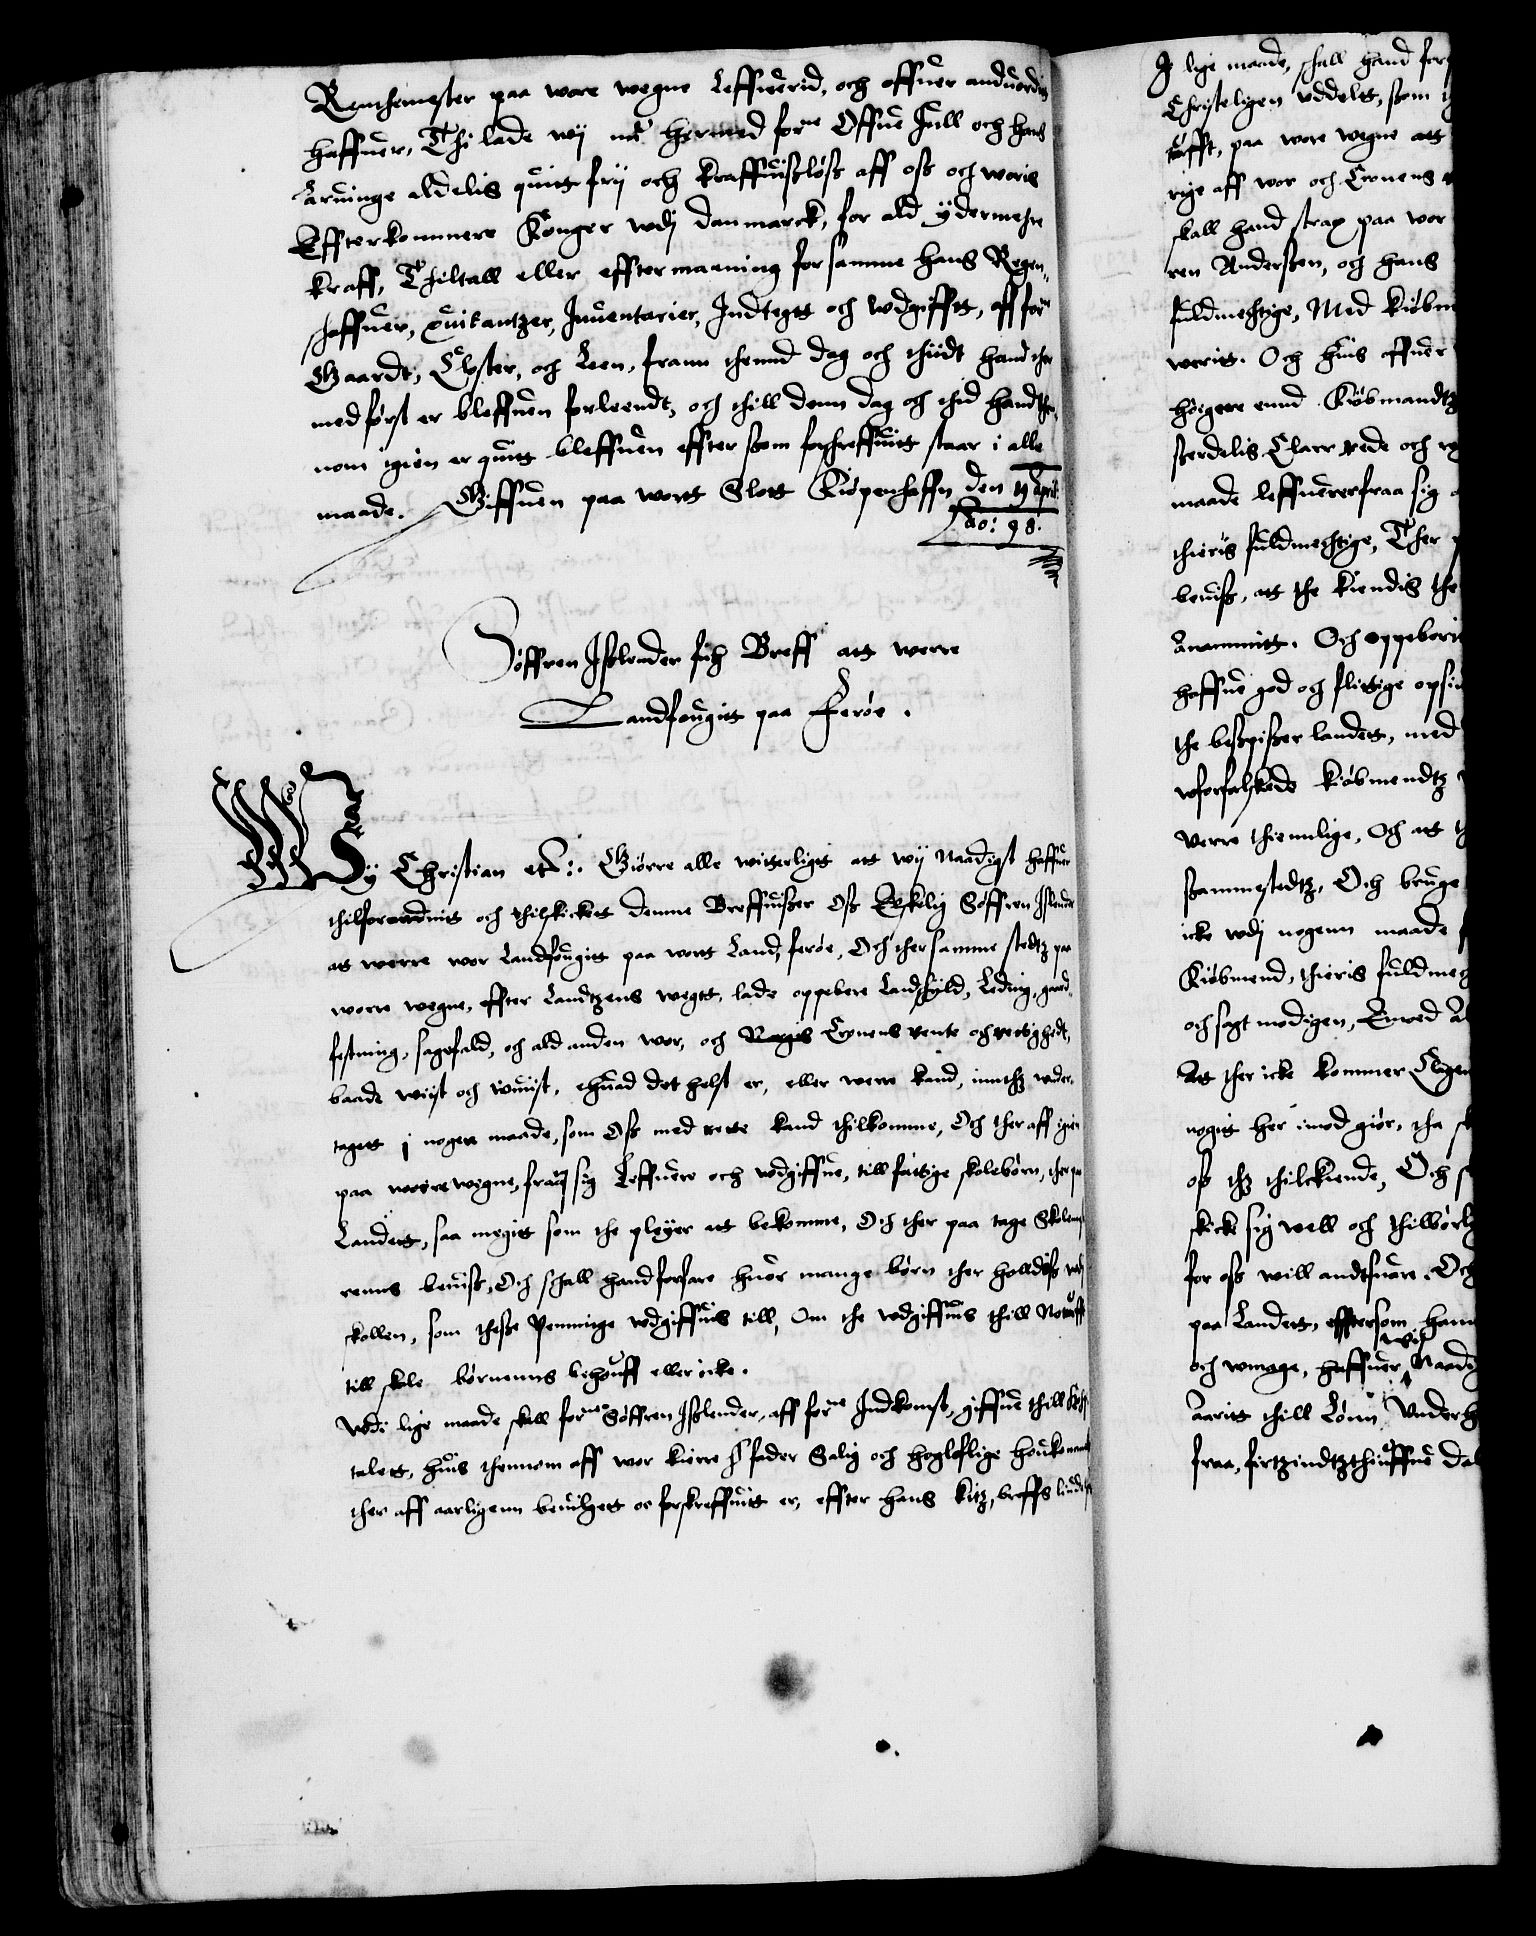 Renthemester paa wore wegne Leffuerid, och offuer anduordit
haffuer, Thi lade wij nu hermed forne Offue Jull och hans
Aruinge aldelis quitt frij och kraffuisløss aff oss och woris
Effterkommere Konger wdj Danmarck, for ald ydermehre
kraff, Thiltall eller efftermaning for samme hans Regen-
shaffuer, quitantzer, Jnuentarier, Jndtegtt och wdgifftt, aff forne
Gaardt, Closter, och Leen, frann thennd dag och thiidt hand ther
med først er bleffuen forleendt, och thill denn dag och thid hand ther
nom igien er quitt bleffuen effter som forschreffuitt staar i alle
maade. Giffuen paa wort Slott Kiøpenhaffn den 19 April
Ao: 98.
Søffren Jsslender fich Breff att werre
Landfougitt paa Ferøe.
Wij Christian etc: Giørre alle witterligtt att wij Naadigst haffuer
thilforordnit och thilskicket denne Breffuisser Oss Elskelig Søffren Jslender
at werre wor Landfougitt paa wort Land, ferøe, Och ther samme stedtz paa
worre wegne, effter Landtzens wegtt, lade oppebere Landskyld, Leding, gaard-
festning, sagefald, och ald anden wor, och Cronens rente och rettighedt,
baade wiist och wuist, ehuad det helst er, eller werre kand, innthz under-
tagett j nogen maade, som Oss med rette kand thilkomme, Och ther aff igien
paa worre wegne, fraa sig Leffuere och wdgiffue, till fattige skolebørn, ther paa
Landett, saa megit som the pleyer att bekomme, Och ther paa tage Skolemeste
renns beuiss, Och schall hand forfare huor mange børn ther holldiss wdj
skollen, som thesse Penninge wdgiffuis till, Om the wdgiffuis thill Nøttorfft
till skole børnenns behouff eller icke.
Wdi lige maade skall forne Søffren Jsslender, aff forne Jndkomst, giffue thill
talett, huis thennom aff wor kierre her fader Salig och høgloflige houkommelse
ther aff aarligenn beuilgett oc forskreffuitt er, effter hans kitz, breffs liudelse
J lige maade, shall hand
Christeligen uddelt, som
tufft, paa wore wegne att
rige aff wor och Cronens
skall hand strax paa wor
ren Anderssen, och hans
fuldmechtige, Med
werit. Och huis offuer
høigere ennd Kiøbmandtz
sterdelis Clarr rede och
maade leffuerer fraa sig
thieris fuldmechtige, Ther
beuiss, att the kiendis the
Anammitt. Och
haffue god och flittige
the besspisser landett, med
wforfalskede kiøbmendtz
verre thiennlige, Och att
sammestedtz, Och bruge
icke wdj nogenn maade
Kiøbmend, thieris
och sagtmodigen,
Att ther icke kommer
nogitt her imod giør, tha
oss thz thilkiende, Och
skicke sig well och
for oss will andtsuare. Och
paa Landett, efftersom
och wmage, haffuer wij
Aaritt thill Lønn
fraa, firtzindtzthiuffue